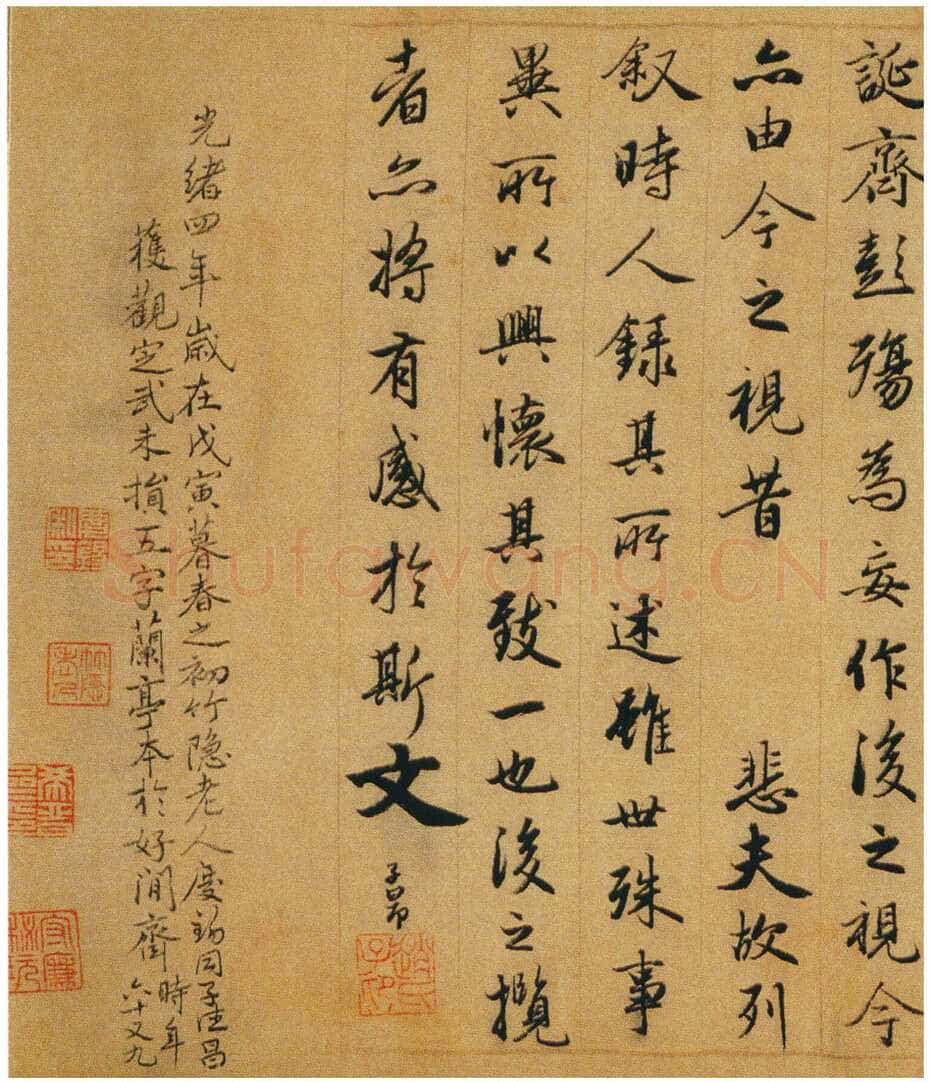 誕齊彭殤為妄作後之視今
亦由今之視昔 悲夫故列
叙時人録其所述雖世殊事
異所以興懷其致一也後之攬
者亦將有感於斯文
子昂
趙氏子印
光緒四年歲在戊寅暮春之初竹隐老人慶錫同子
昌
獲觀定武未損五字蘭亭本於好閒齋時年
六十又九
Shufawang.CN